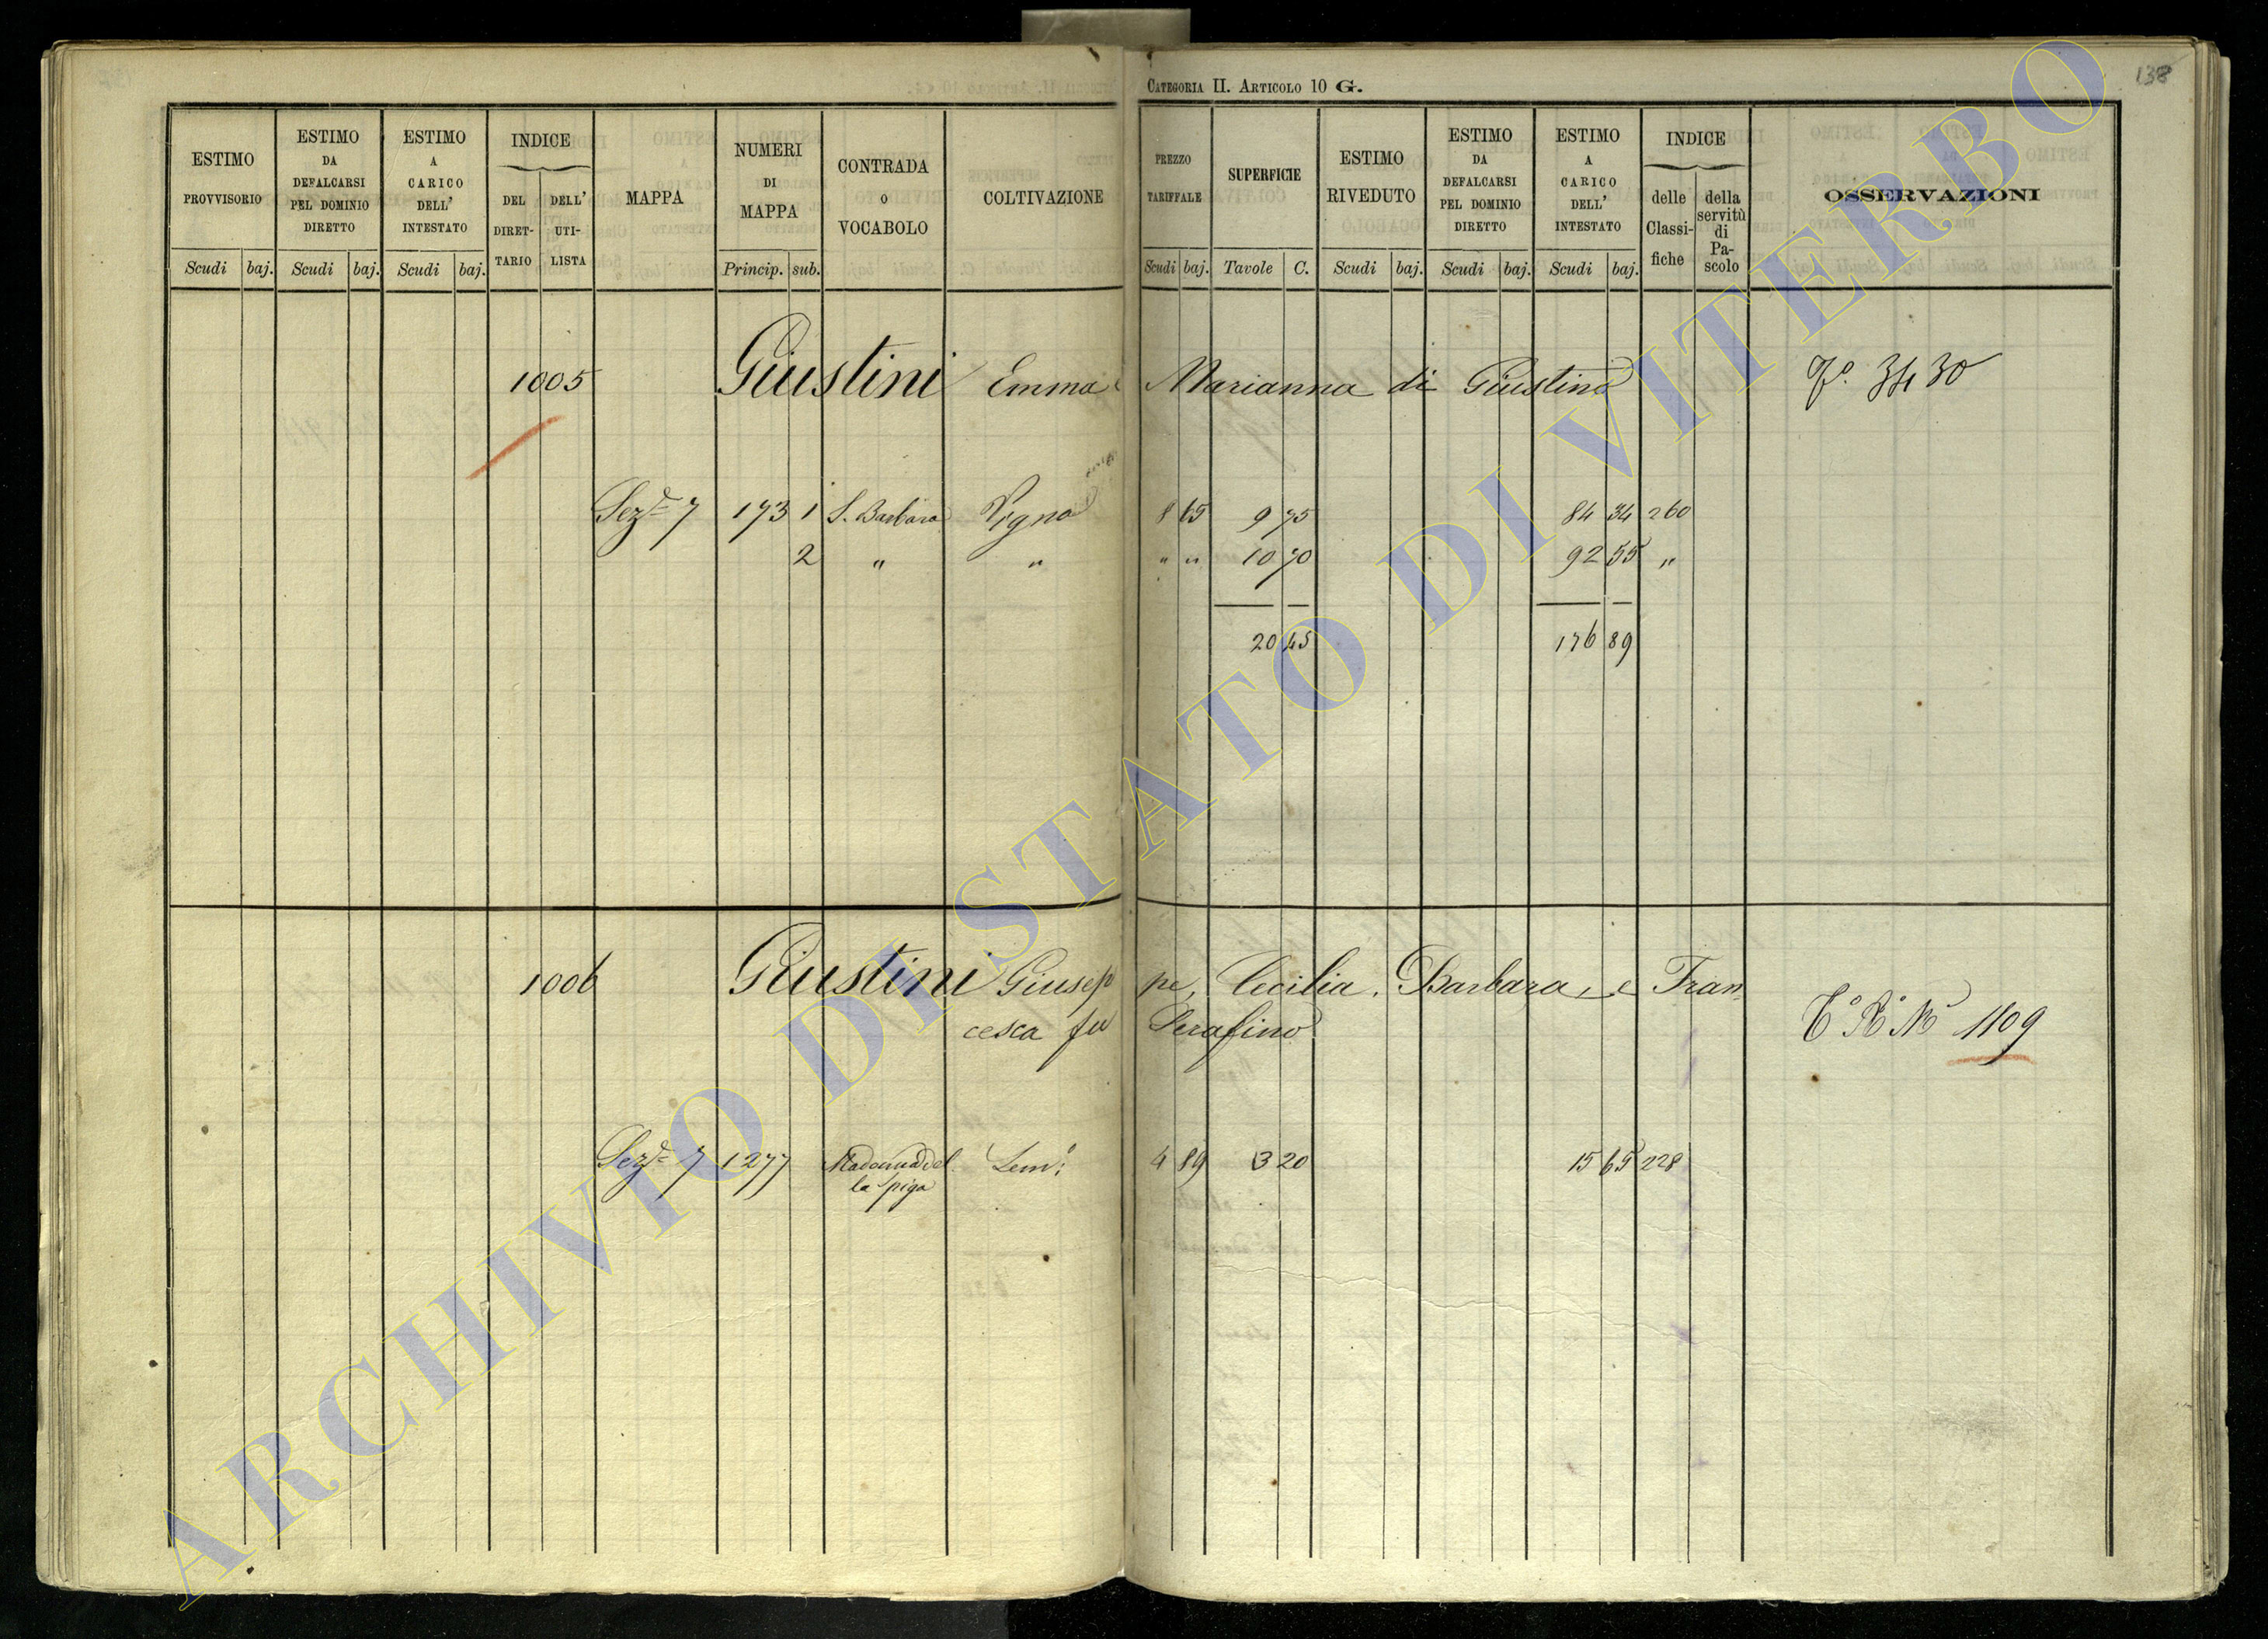 138
CATEGORIA II. ARTICOLO 10 G.
ESTIMO PROVVISORIO
ESTIMO DA DEFALCARSI PEL DOMINIO DIRETTO
ESTIMO A CARICO DELL' INTESTATO
INDICE
DEL DIRET-TARIO
DELL' UTI-LISTA
MAPPA
NUMERI DI MAPPA
CONTRADA O VOCABOLO
COLTIVAZIONE
PREZZO TARIFFALE
SUPERFICIE
ESTIMO RIVEDUTO
ESTIMO DA DEFALCARSI PEL DOMINIO DIRETTO
ESTIMO A CARICO DELL' INTESTATO
INDICE
delle Classi-fiche
della servitù di Pa-scolo
OSSERVAZIONI
Scudi baj. Scudi baj. Scudi baj. Princip. sub. Scudi baj. Tavole C. Scudi baj. Scudi baj. Scudi baj.
1005 Giustini Emma e Marianna di Giustino 3430
Sez.e 7 173 1 S. Barbara Vigna 8 65 9 75 84 34 260
2 " " " " 10 70 92 55 "
20 45 176 89
1006 Giustini Giusep pe, Cecilia, Barbara, e Fran
cesca fu Serafino 1109
Sez.e 7 1277 Madonna del Sem: 4 89 3 20 15 65 228
la piga
ARCHIVIO DI STATO DI VITERBO